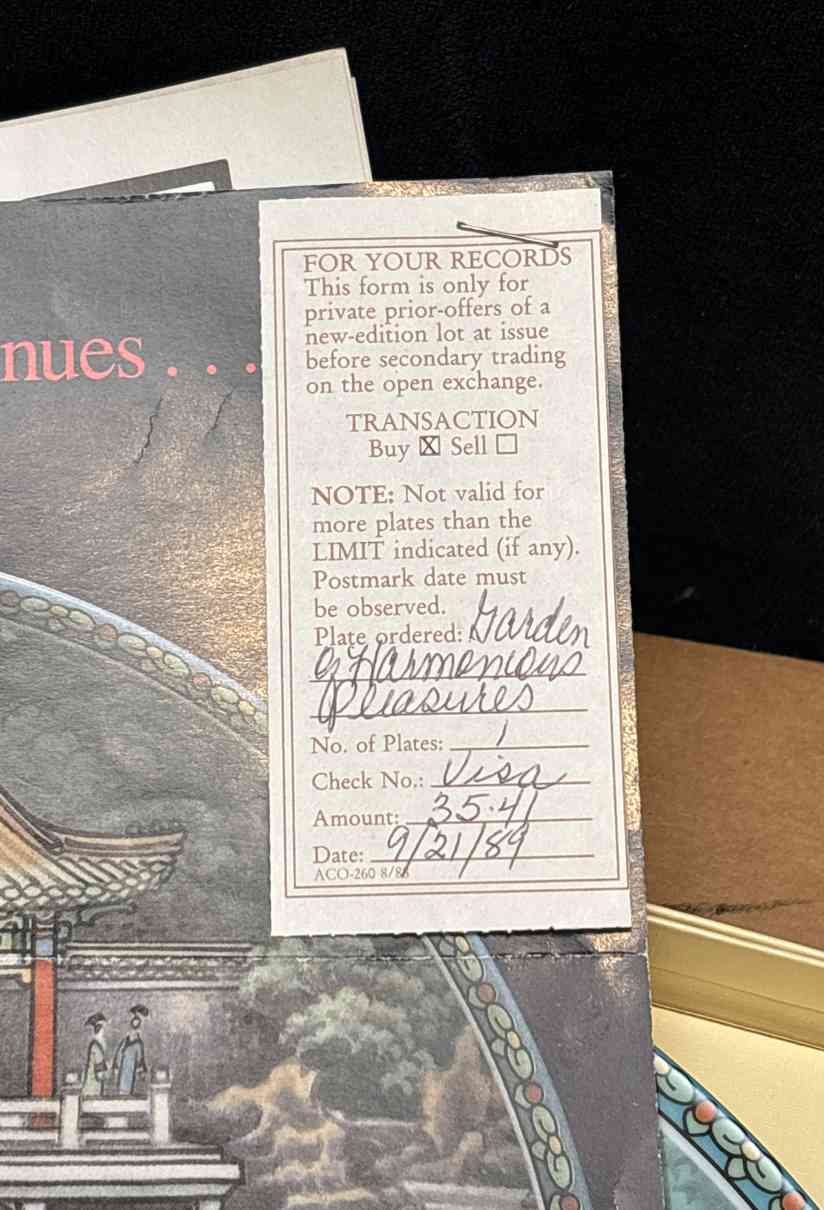 nues . . .
FOR YOUR RECORDS
This form is only for
private prior-offers of a
new-edition lot at issue
before secondary trading
on the open exchange.
TRANSACTION
Buy ☒ Sell ☐
NOTE: Not valid for
more plates than the
LIMIT indicated (if any).
Postmark date must
be observed.
Plate ordered: Garden
of Harmonious
Pleasures
No. of Plates: 1
Check No.: Visa
Amount: 35.41
Date: 9/21/89
ACO-260 8/88